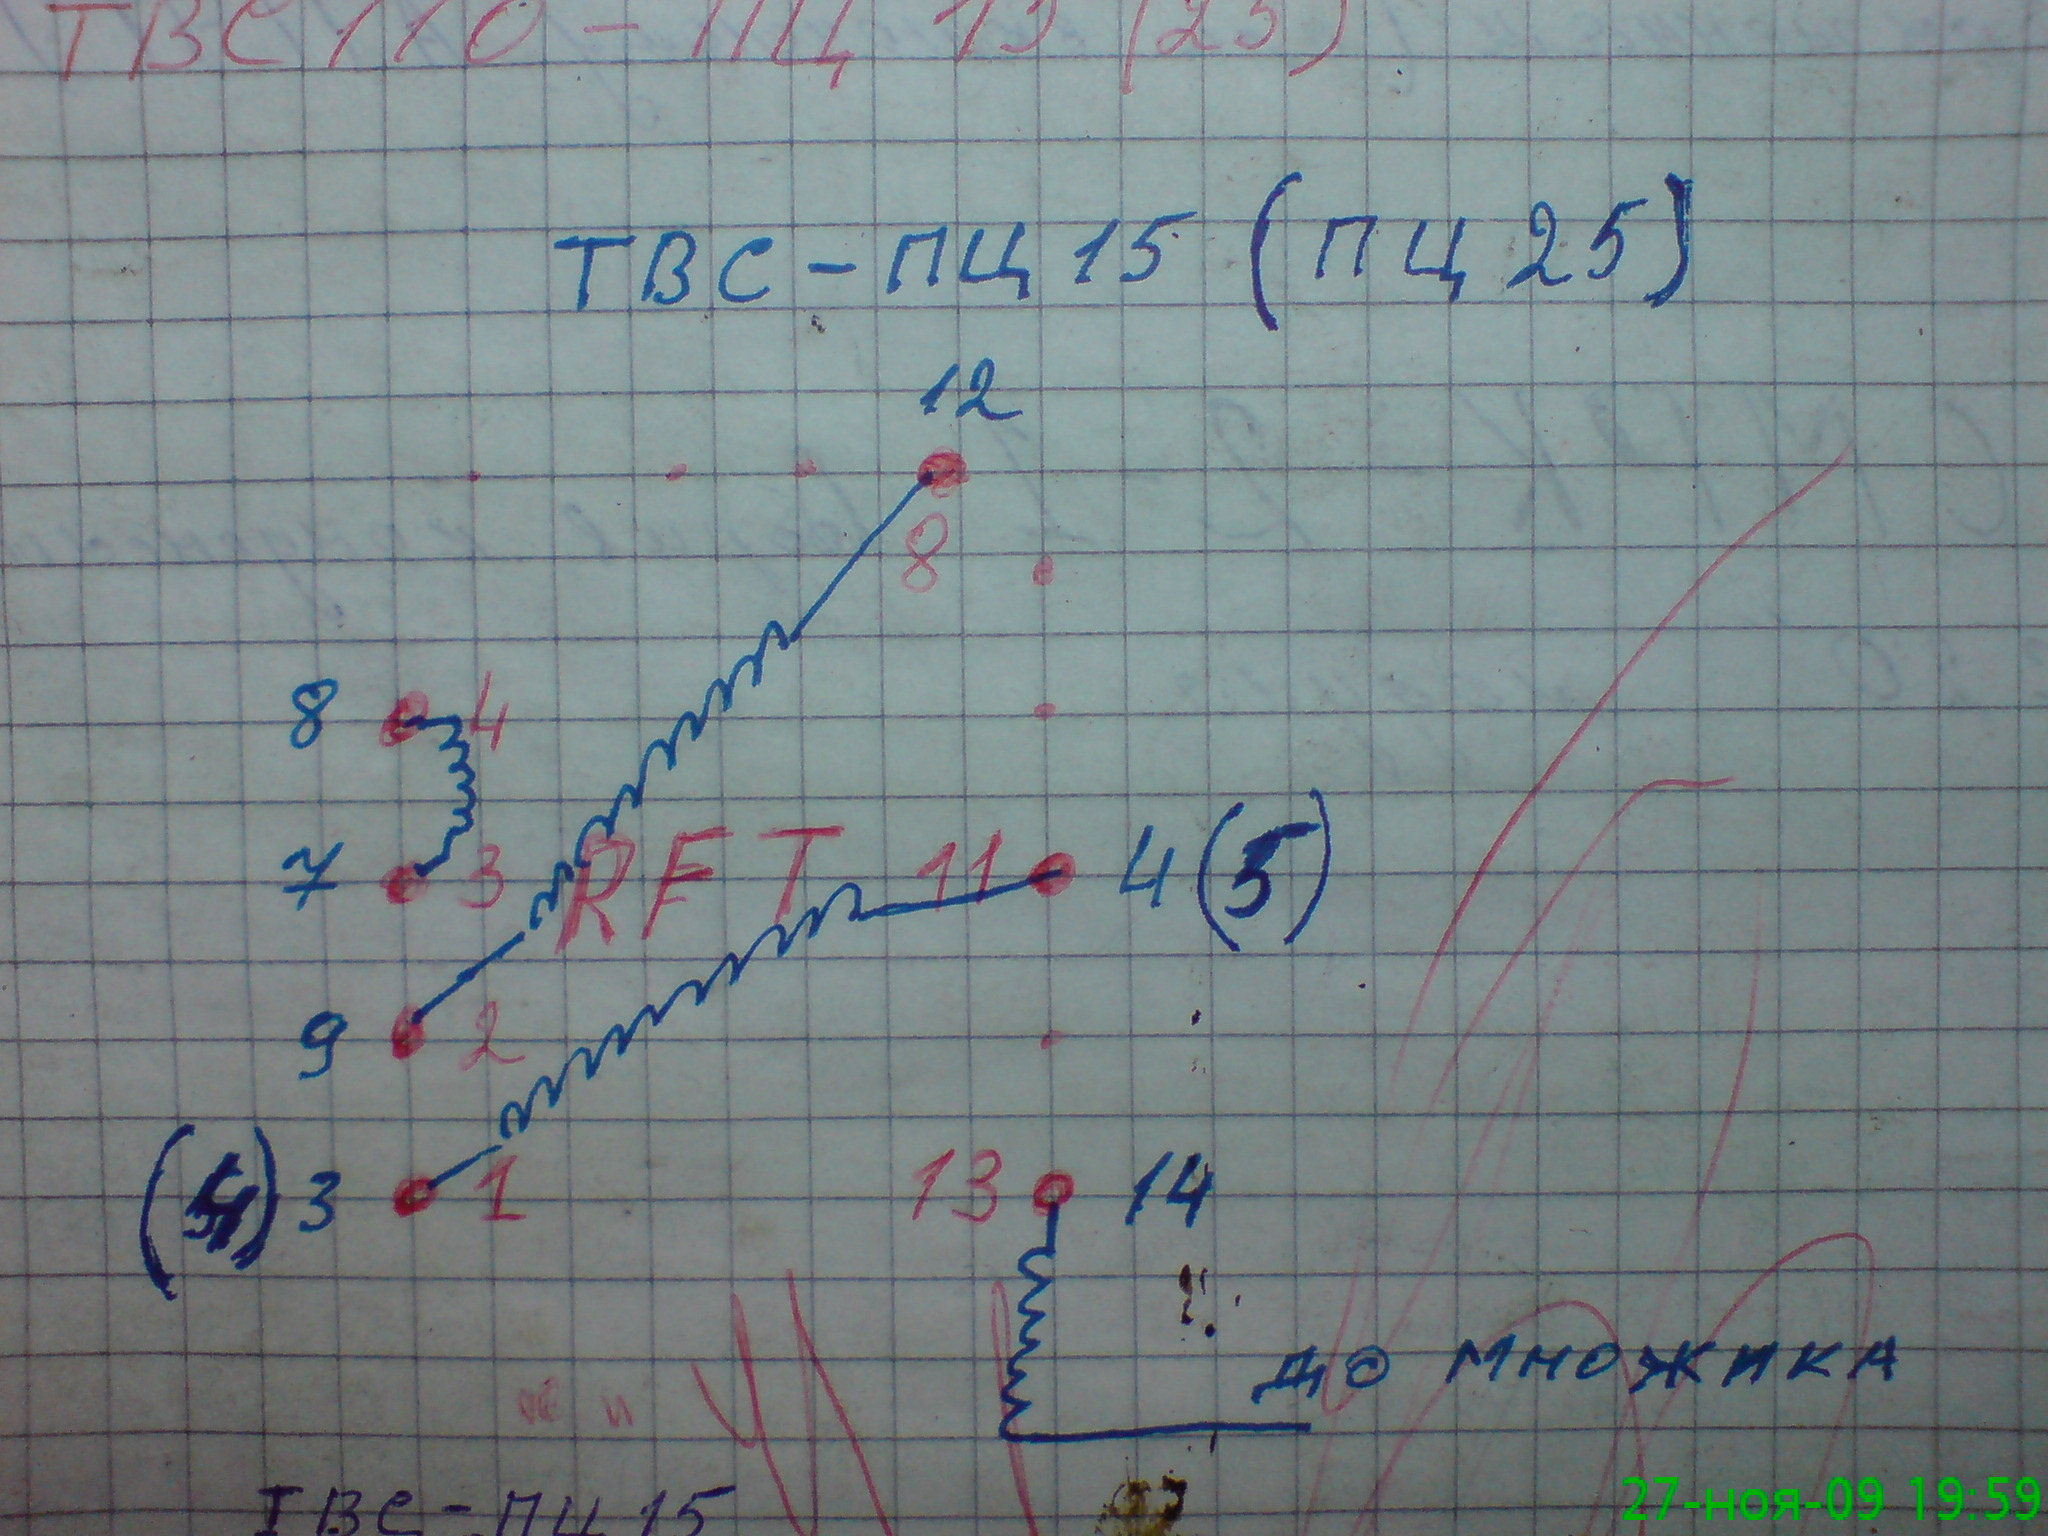 ТВС110-ПЦ 15 (25)
ТВС-ПЦ 15 (ПЦ 25)
12
8
8 4
7 3
RFT 11 4 (5)
9 2
(4) 3 1
13 14
до множика
ТВС-ПЦ 15
27-ноя-09 19:59